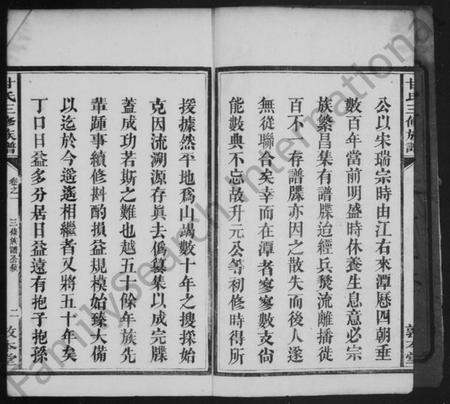 甘氏三修族譜
敦本堂
公以宋瑞宗時由江右來潭歷四朝垂
數百年當前明盛時休養生息意必宗
族繁昌集有譜牒迨經兵燹流離播徙
百不一存譜牒亦因之散失而後人遂
無從聯合矣幸而在潭者寥寥數支尙
能數典不忘故升元公等初修時得所
援據然平地爲山蒐數十年之搜採始
克因流溯源存眞去僞纂集以成完牒
蓋成功若斯之難也越五十餘年族先
輩踵事續修斟酌損益規模始臻大備
以迄於今遙遙相繼者又將五十年矣
丁口日益多分居日益遠有抱子抱孫
甘氏三修族譜
卷之一
三修族譜公啟
二
敦本堂
FamilySearch International